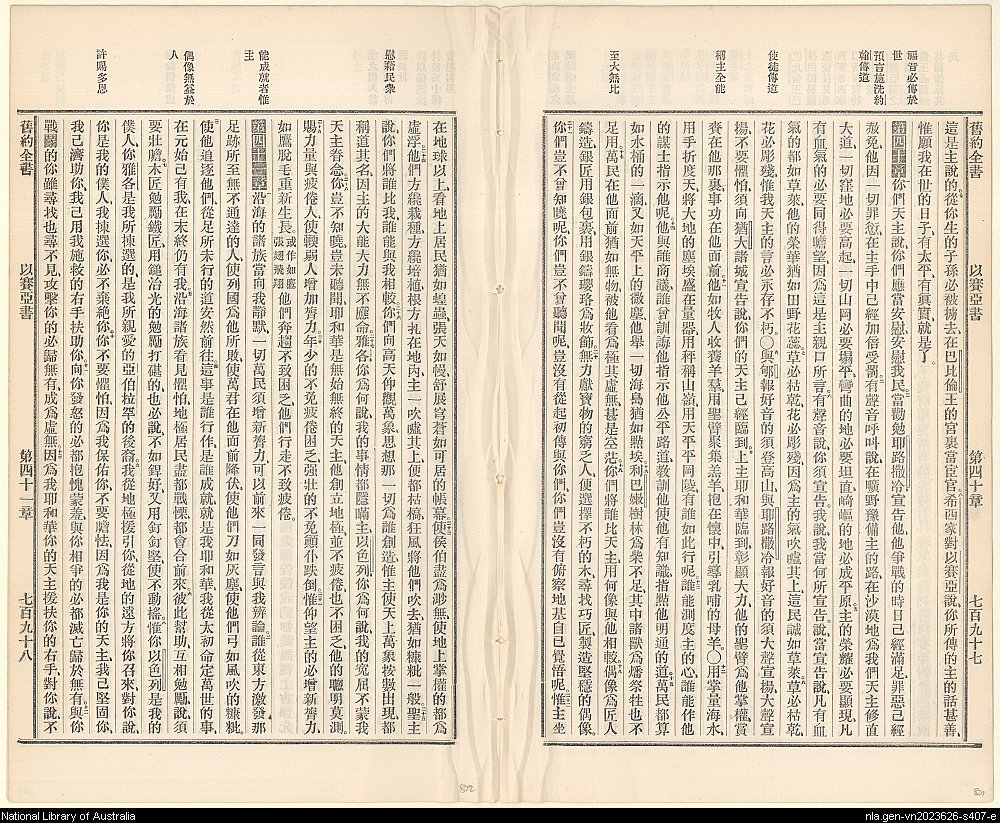 福音必傳於
世
預言施洗約
翰傳道
使徒傳道
稱主全能
至大無比
舊約全書 以賽亞書 第四十章 七百九十七
這是主說的從你生的子孫必被擄去在巴比倫王的宮裏當宦官希西家對以賽亞說你所傳的主的話甚善
惟願我在世的日子有太平有眞實就是了
第四十章 你們天主說你們應當安慰安慰我民當勸勉耶路撒冷宣告他他爭戰的時日已經滿足罪惡已經
赦免他因一切罪愆在主手中已經加倍受罰有聲音呼叫說在曠野豫備主的路在沙漠地爲我們天主修直
大道一切窪地必要高起一切山岡必要塌平彎曲的地必要坦直崎嶇的地必成平原主的榮耀必要顯現凡
有血氣的必要同得瞻望因爲這是主親口所言有聲音說你須宣告我說我當何所宣告說當宣告說凡有血
氣的都如草萊他的榮華猶如田野花蕊草必枯乾花必彫殘因爲主的氣吹噓其上這民誠如草萊草必枯乾
花必彫殘惟我天主的言必永存不朽〇與郇報好音的須登高山與耶路撒冷報好音的須大聲宣揚大聲宣
揚不要懼怕須向猶大諸城宣告說你們的天主已經臨到上主耶和華臨到彰顯大力他的聖臂爲他掌權賞
賚在他那裏事功在他面前他如牧人收養羊羣用聖臂聚集羔羊抱在懷中引導乳哺的母羊〇用掌量海水
用手折度天將大地的塵埃盛在量器用秤稱山嶺用天平平岡陵有誰能如此行呢誰能測度主的心誰能作他
的謀士指示他呢他與誰商議誰曾訓誨他指示他公平路道教訓他使他有知識指點他明通的道萬民都算
如水桶的一滴又如天平上的微塵他舉一切海島猶如點埃利巴嫩樹林爲柴不足其中諸獸爲燔祭牲也不
足用萬民在他面前猶如無物被他看爲極其虛無甚是空茫你們將誰比天主用何像與他相較偶像爲匠人
鑄造銀匠用銀包裹用銀鑄瓔珞爲妝飾無力獻寶物的窮乏人便選擇不朽的木尋找巧匠製造堅穩的偶像
你們豈不曾知曉呢你們豈不曾聽聞呢豈沒有從起初傳與你們你們豈沒有俯察地基自已覺悟呢惟主坐
慰藉民衆
能成就者惟
主
偶像無益於
人
許賜多恩
在地球以上看地上居民猶如蝗蟲張天如幔舒展穹蒼如可居的帳幕使侯伯盡爲渺無使地上掌權的都爲
虛浮他們方纔栽種方纔培植根方扎在地內主一吹噓其上便都枯槁狂風將他們吹去猶如糠粃一般聖主
說你們將誰比我誰能與我相較你們向高天仰觀萬象思想那一切爲誰創造惟主使天上萬象按數出現都
稱道其名因主的大能大力無不應命雅各你爲何說我的事情都隱瞞主以色列你爲何說我的寃屈不蒙我
天主眷念你豈不知曉豈未聽聞耶和華是無始無終的天主他創立地極並不疲倦也不困乏他的聰明莫測
賜力量與疲倦人使輭弱人增加膂力年少的不免疲倦困乏強壯的不免顫仆跌倒惟仰望主的必增新膂力
如鷹脫毛重新生長或作如鷹張翅飛翔他們奔趨不致困乏他們行走不致疲倦
第四十一章 沿海的諸族當向我靜默一切萬民須增新膂力可以前來一同發言與我辨論誰從東方激發那
足跡所至無不通達的人使列國爲他所敗使萬君在他面前降伏使他們刀如灰塵使他們弓如風吹的糠粃
使他追逐他們從足所未行的道安然前往這事是誰行作是誰成就就是我耶和華我從太初命定萬世的事
在元始已有我在末終仍有我沿海諸族看見懼怕地極居民盡都戰慄都會合前來彼此幫助互相勉勵說須
要壯膽木匠勉勵鐵匠用鎚治光的勉勵打碪的也必說不如銲好又用釘釘堅使不動搖惟你以色列是我的
僕人你雅各是我所揀選的是我所親愛的亞伯拉罕的後裔我從地極援引你從地的遠方將你召來對你說
你是我的僕人我揀選你必不棄絶你你不要懼怕因爲我保佑你不要驚怯因爲我是你的天主我已堅固你
我已濟助你我已用我施救的右手扶助你向你發怒的必都抱愧蒙羞與你相爭的必都滅亡歸於無有與你
戰鬭的你雖尋找也尋不見攻擊你的必歸無有成爲虛無因爲我耶和華你的天主援扶你的右手對你說不
舊約全書 以賽亞書 第四十一章 七百九十八
802
801
National Library of Australia
nla.gen-vn2023626-s407-e